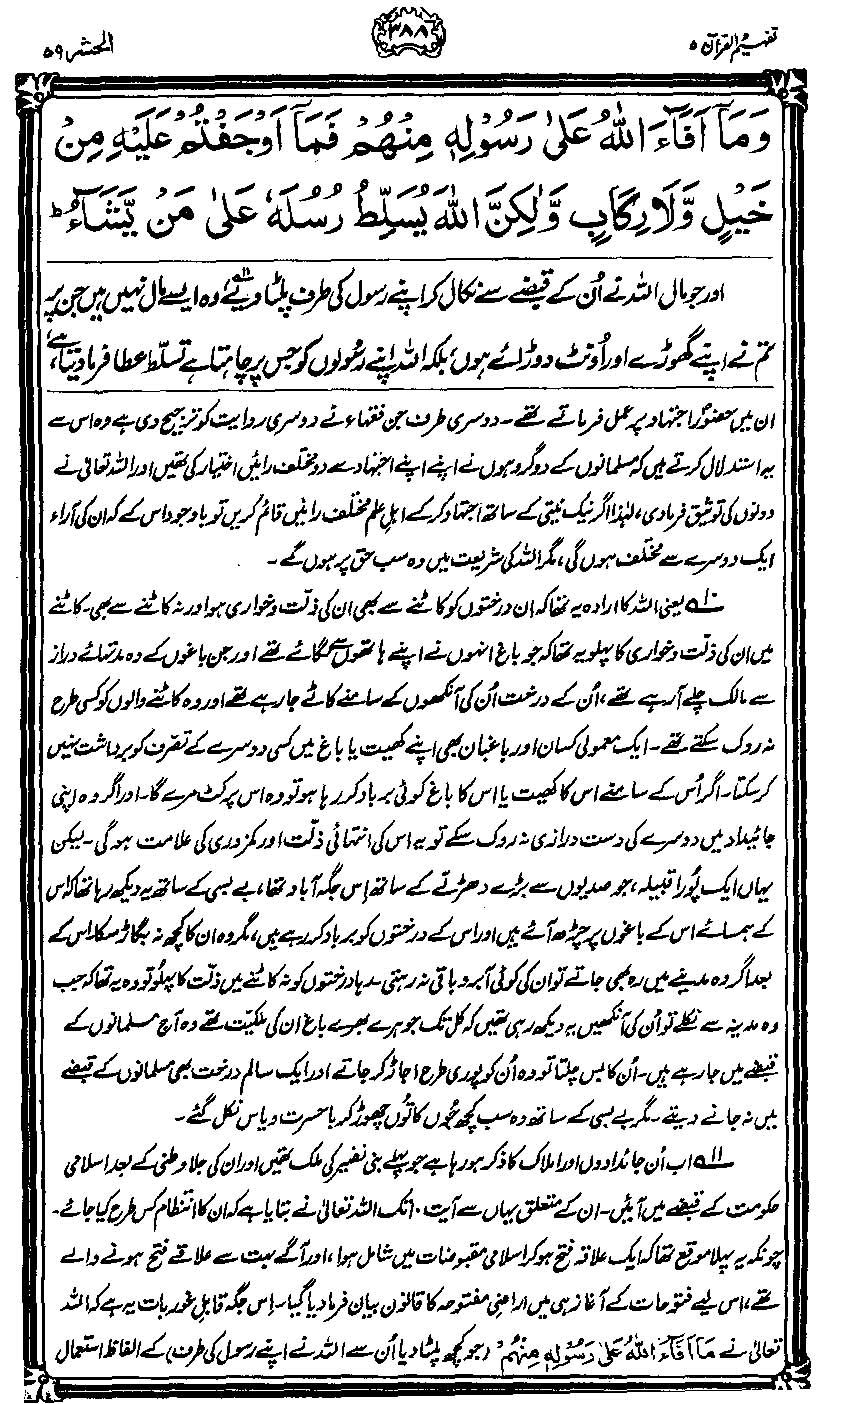 تفہیم القرآن ۵
۳۸۸
الحشر ۵۹
وَمَآ اَفَآءَ اللّٰهُ عَلٰى رَسُوْلِهٖ مِنْهُمْ فَمَآ اَوْجَفْتُمْ عَلَيْهِ مِنْ
خَيْلٍ وَّلَا رِكَابٍ وَّلٰكِنَّ اللّٰهَ يُسَلِّطُ رُسُلَهٗ عَلٰى مَنْ يَّشَآءُ ؕ
اور جو مال اللہ نے اُن کے قبضے سے نکال کر اپنے رسول کی طرف پلٹا دیے،ؔ۱۱ وہ ایسے مال نہیں ہیں جن پر
تم نے اپنے گھوڑے اور اُونٹ دوڑائے ہوں، بلکہ اللہ اپنے رسُولوں کو جس پر چاہتا ہے تسلّط عطا فرما دیتا ہے،
ان میں حضورؐ اجتہاد پر عمل فرماتے تھے۔ دوسری طرف جن فقہاء نے دوسری روایت کو ترجیح دی ہے وہ اس سے
یہ استدلال کرتے ہیں کہ مسلمانوں کے دو گروہوں نے اپنے اپنے اجتہاد سے دو مختلف رائیں اختیار کی تھیں اور اللہ تعالیٰ نے
دونوں کی توثیق فرما دی، لہٰذا اگر نیک نیتی کے ساتھ اجتہاد کر کے اہلِ علم مختلف رائیں قائم کریں تو باوجود اس کے کہ ان کی آراء
ایک دوسرے سے مختلف ہوں گی، مگر اللہ کی شریعت میں وہ سب حق پر ہوں گے۔
۱۰؎ یعنی اللہ کا ارادہ یہ تھا کہ ان درختوں کو کاٹنے سے بھی ان کی ذلّت و خواری ہو اور نہ کاٹنے سے بھی۔ کاٹنے
میں ان کی ذلّت و خواری کا پہلو یہ تھا کہ جو باغ انہوں نے اپنے ہاتھوں سے لگائے تھے اور جن باغوں کے وہ مدتہائے دراز
سے مالک چلے آ رہے تھے، اُن کے درخت اُن کی آنکھوں کے سامنے کاٹے جا رہے تھے اور وہ کاٹنے والوں کو کسی طرح
نہ روک سکتے تھے۔ ایک معمولی کسان اور باغبان بھی اپنے کھیت یا باغ میں کسی دوسرے کے تصرّف کو برداشت نہیں
کر سکتا۔ اگر اُس کے سامنے اس کا کھیت یا اس کا باغ کوئی برباد کر رہا ہو تو وہ اس پر کٹ مرے گا۔ اور اگر وہ اپنی
جائیداد میں دوسرے کی دست درازی نہ روک سکے تو یہ اس کی انتہائی ذلّت اور کمزوری کی علامت ہو گی۔ لیکن
یہاں ایک پُورا قبیلہ، جو صدیوں سے بڑے دھڑلّے کے ساتھ اِس جگہ آباد تھا، بے بسی کے ساتھ یہ دیکھ رہا تھا کہ اس
کے ہمسائے اس کے باغوں پر چڑھ آئے ہیں اور اس کے درختوں کو برباد کر رہے ہیں، مگر وہ ان کا کچھ نہ بگاڑ سکا۔ اس کے
بعد اگر وہ مدینے میں رہ بھی جاتے تو ان کی کوئی آبرو باقی نہ رہتی۔ رہا درختوں کو نہ کاٹنے میں ذلّت کا پہلو تو وہ یہ تھا کہ جب
وہ مدینہ سے نکلے تو اُن کی آنکھیں یہ دیکھ رہی تھیں کہ کل تک جو ہرے بھرے باغ ان کی ملکیّت تھے وہ آج مسلمانوں کے
قبضے میں جا رہے ہیں۔ اُن کا بس چلتا تو وہ اُن کو پوری طرح اجاڑ کر جاتے اور ایک سالم درخت بھی مسلمانوں کے قبضے
میں نہ جانے دیتے۔ مگر بے بسی کے ساتھ وہ سب کچھ جُوں کا تُوں چھوڑ کر باحسرت و یاس نکل گئے۔
۱۱؎ اب اُن جائدادوں اور املاک کا ذکر ہو رہا ہے جو پہلے بنی نضیر کی ملک تھیں اور ان کی جلا وطنی کے بعد اسلامی
حکومت کے قبضے میں آئیں۔ ان کے متعلق یہاں سے آیت ۱۰ تک اللہ تعالیٰ نے بتایا ہے کہ ان کا انتظام کس طرح کیا جائے۔
چونکہ یہ پہلا موقع تھا کہ ایک علاقہ فتح ہو کر اسلامی مقبوضات میں شامل ہوا، اور آگے بہت سے علاقے فتح ہونے والے
تھے، اس لیے فتوحات کے آغاز ہی میں اراضی مفتوحہ کا قانون بیان فرما دیا گیا۔ اِس جگہ قابلِ غور بات یہ ہے کہ اللہ
تعالیٰ نے مَآ اَفَآءَ اللّٰهُ عَلٰى رَسُوْلِهٖ مِنْهُمْ (جو کچھ پلٹا دیا اُن سے اللہ نے اپنے رسول کی طرف) کے الفاظ استعمال